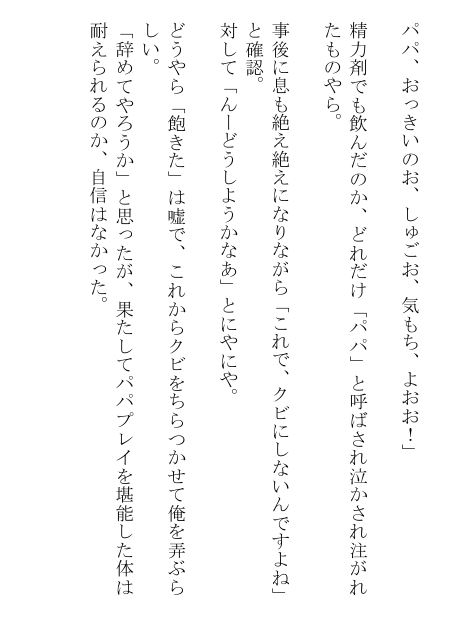 パパ、おっきいのお、しゅごお、気もち、よおお！」
精力剤でも飲んだのか、どれだけ「パパ」と呼ばされ泣かされ注がれ
たものやら。
事後に息も絶え絶えになりながら「これで、クビにしないんですよね」
と確認。
対して「んーどうしようかなあ」とにやにや。
どうやら「飽きた」は嘘で、これからクビをちらつかせて俺を弄ぶら
しい。
「辞めてやろうか」と思ったが、果たしてパパプレイを堪能した体は
耐えられるのか、自信はなかった。